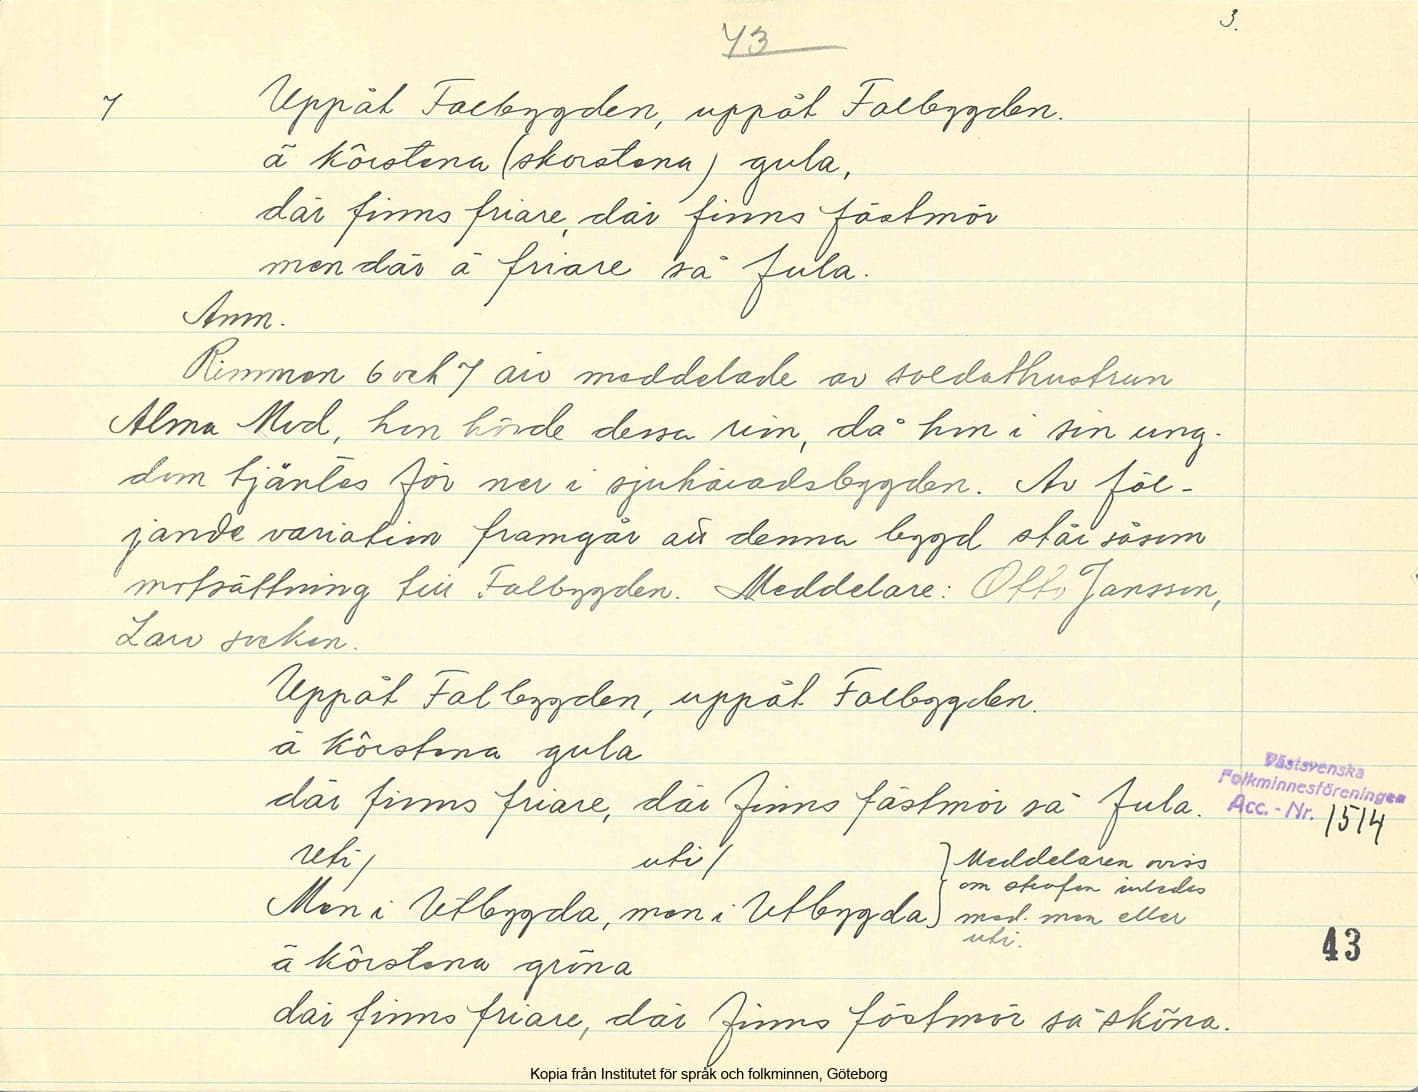 3.
43
7 Uppåt Falbygden, uppåt Falbygden.
ä kôrstena (skorstena) gula,
där finns friare, där finns fästmör
men där ä friare så fula.
Anm.
Rimmen 6 och 7 äro meddelade av soldathustrun
Alma Mod, hon hörde dessa rim, då hon i sin ung-
dom tjäntes för ner i sjuhäradsbygden. Av föl-
jande variation framgår att denna bygd står såsom
motsättning till Falbygden. Meddelare: Otto Jansson,
Larv socken.
Uppåt Falbygden, uppåt Falbygden.
ä kôrstena gula
där finns friare, där finns fästmör så fula.
Västsvenska
Folkminnesföreningen
Acc. - Nr. 1514
Uti / uti /
Men i Utbygda, men i Utbygda } Meddelaren oviss
om strofen inledes
med. men eller
uti.
43
ä kôrstena gröna
där finns friare, där finns fästmör så sköna.
Kopia från Institutet för språk och folkminnen, Göteborg